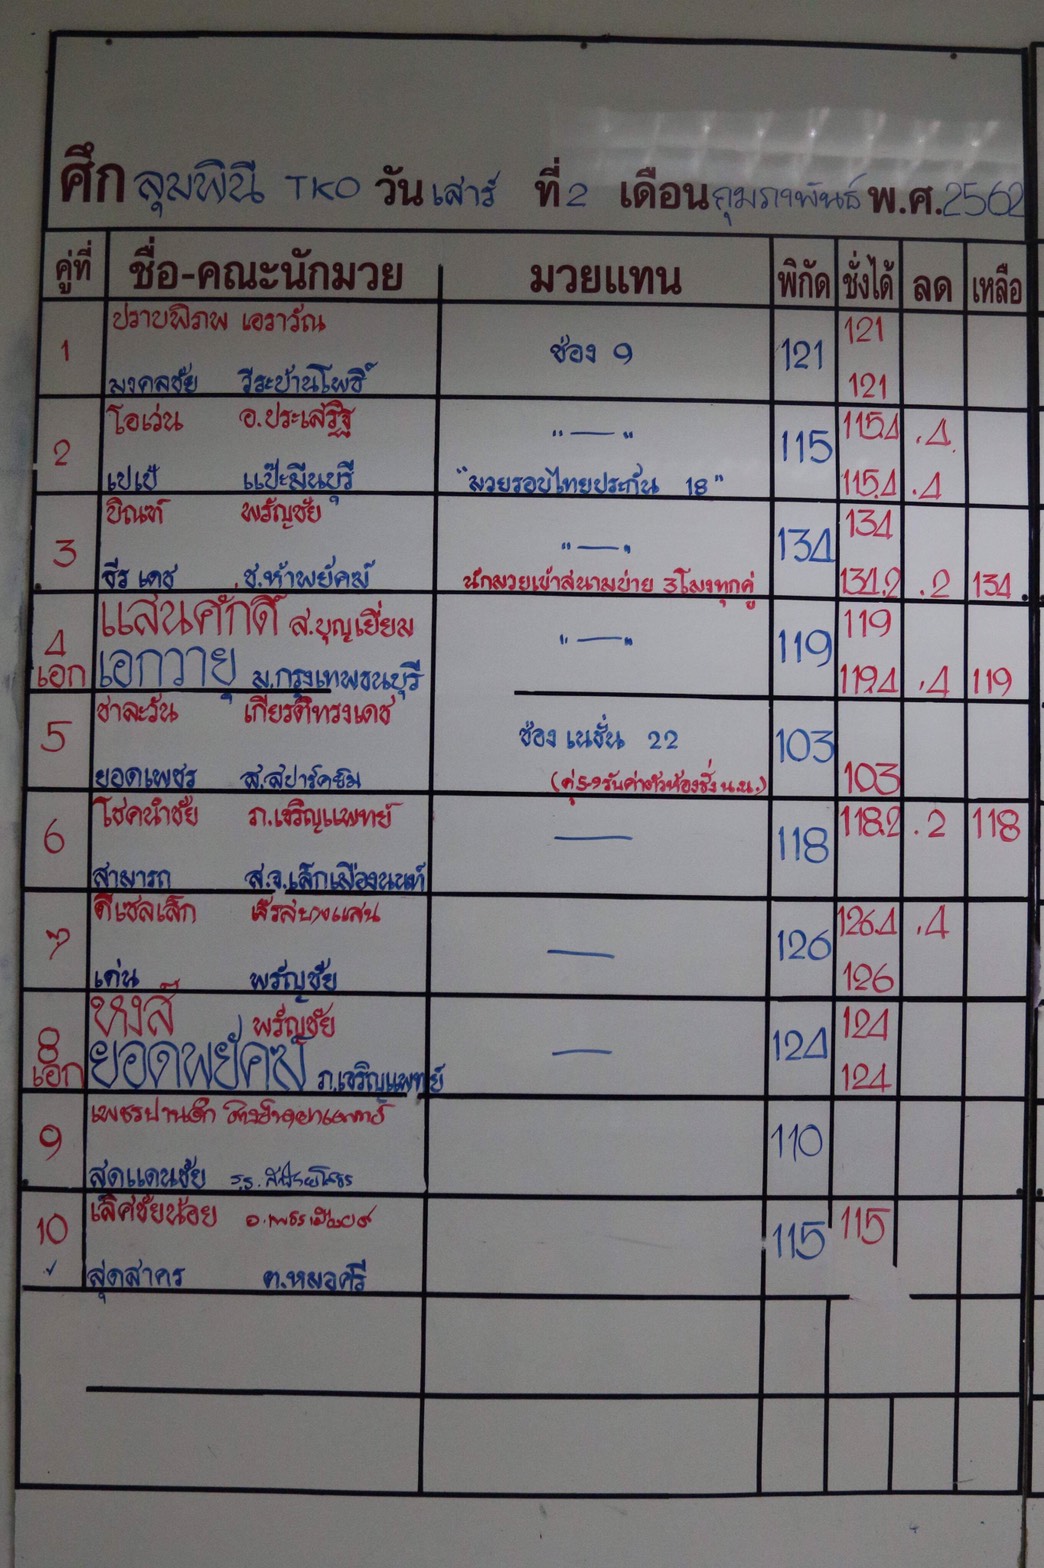 ศึก ลุมพินี TKO วัน เสาร์ ที่ 2 เดือน กุมภาพันธ์ พ.ศ. 2562
คู่ที่ ชื่อ-คณะนักมวย มวยแทน พิกัด ชั่งได้ ลด เหลือ
ปราบพิภพ เอราวัณ 121
1 ช่อง 9 121
มงคลชัย วีระบ้านโพธิ์ 121
โอเว่น อ.ประเสริฐ 115.4 .4
2 "—" 115
เปเป้ แป๊ะมีนบุรี "มวยรอบไทยประกัน 18" 115.4 .4
พรัญชัย 134
3 "—" 134
ธีรเดช ช.ห้าพยัคฆ์ นักมวยเข้าสนามบ่าย 3 โมงทุกคู่ 134.2 .2 134
แสนศักดิ์ ส.บุญเยี่ยม 119
4 "—" 119
เอก เอกวายุ ม.กรุงเทพธนบุรี 119.4 .4 119
ชาละวัน เกียรติทรงเดช
5 ช่อง เนชั่น 22 103
ยอดเพชร ส.สปาร์คยิม 103
โชคนำชัย ภ.เจริญแพทย์ 118.2 .2 118
6 — 118
สามารถ ส.จ.เล็กเมืองนนท์
ดีเซลเล็ก 126.4 .4
7 — 126
เด่น พรัญชัย 126
หงส์ พรัญชัย 124
8 — 124
เอก ยอดพยัคฆ์ ภ.เจริญแพทย์ 124
9 110
สุดแดนชัย
เลิศชัยน้อย 115
10 115
✓ สุดสาคร ต.หมอศรี